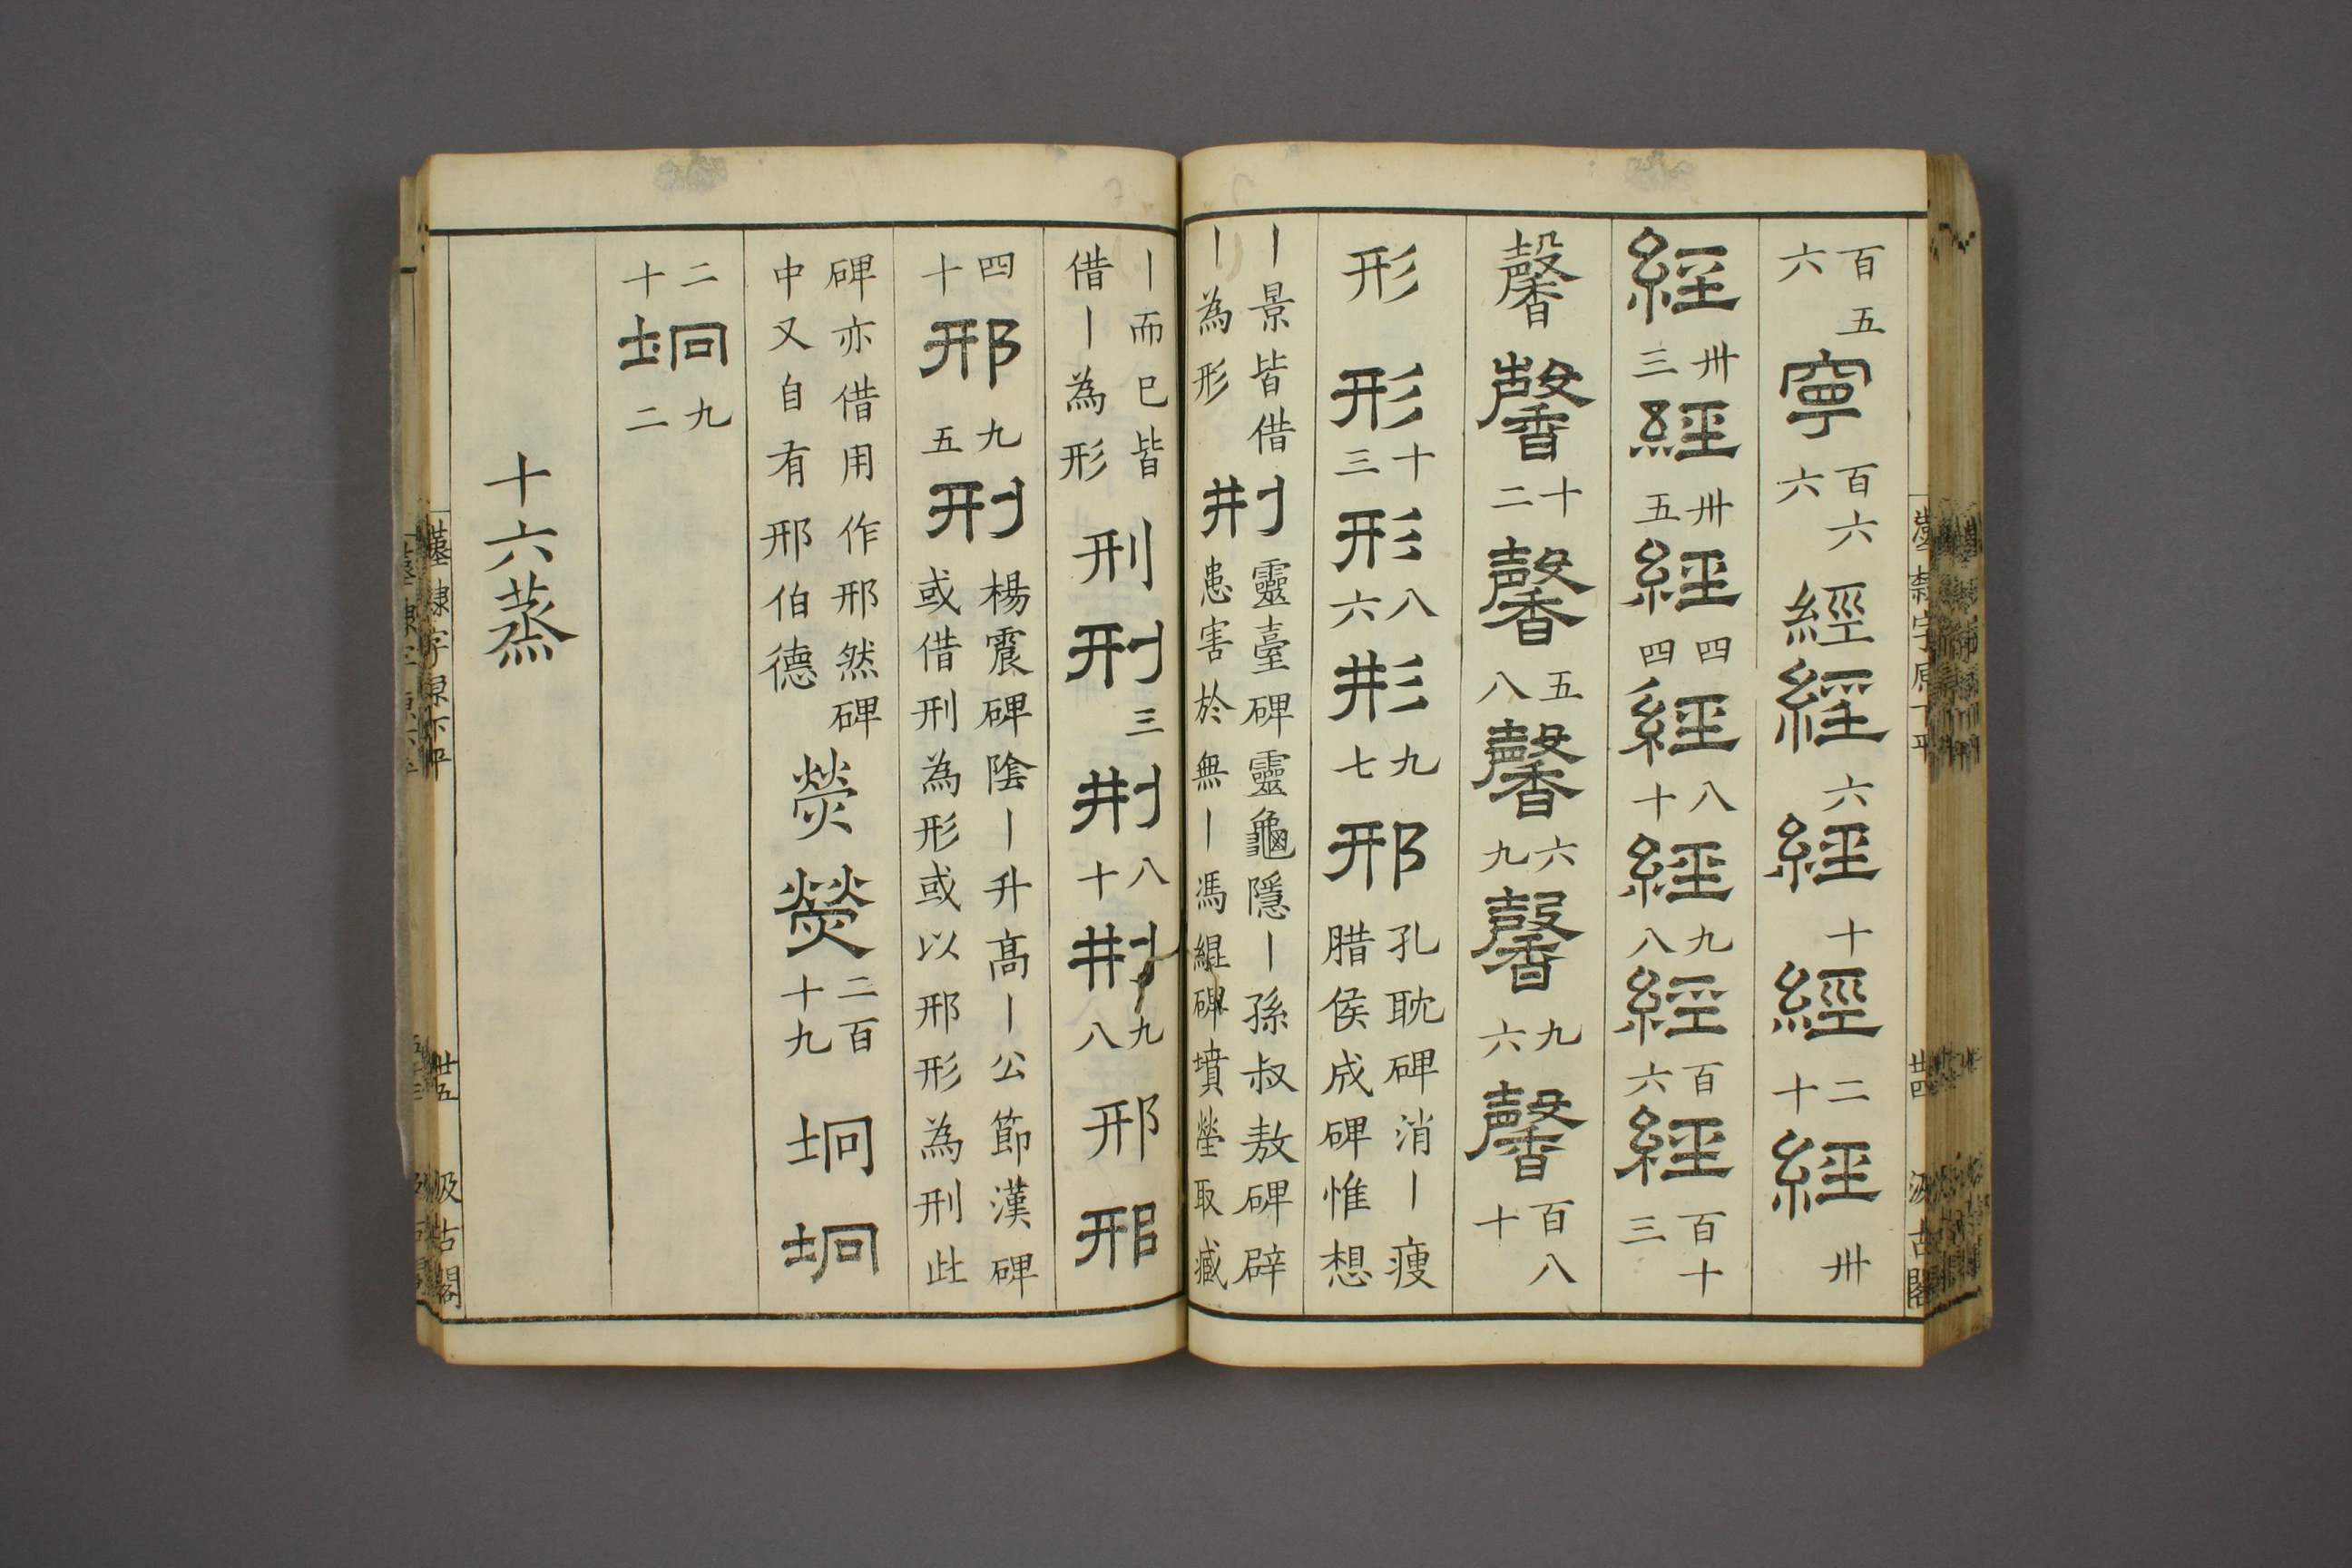 百五六寧百六六經經六經十經二十經卅
經卅三經卅五經四四經八十經九八經百六經百十三
馨馨十二馨五八馨六九馨九六馨百八十
形形十三形八六形九七邢孔耽碑消丨瘦腊侯成碑惟想
丨景皆借丨為形刑靈臺碑靈龜隱丨孫叔敖碑辟患害於無丨馮緄碑墳塋取臧
丨而已皆借丨為形刑刑三刑八十刑九八邢邢
四十邢九五刑楊震碑陰丨升高丨公節漢碑或借刑為形或以邢形為刑此
碑亦借用作邢然碑中又自有邢伯德熒熒二百十九坰坰
二十坰九二
十六蒸
漢隸字原下平
廿四
汲古閣
漢隸字原下平
廿五
汲古閣